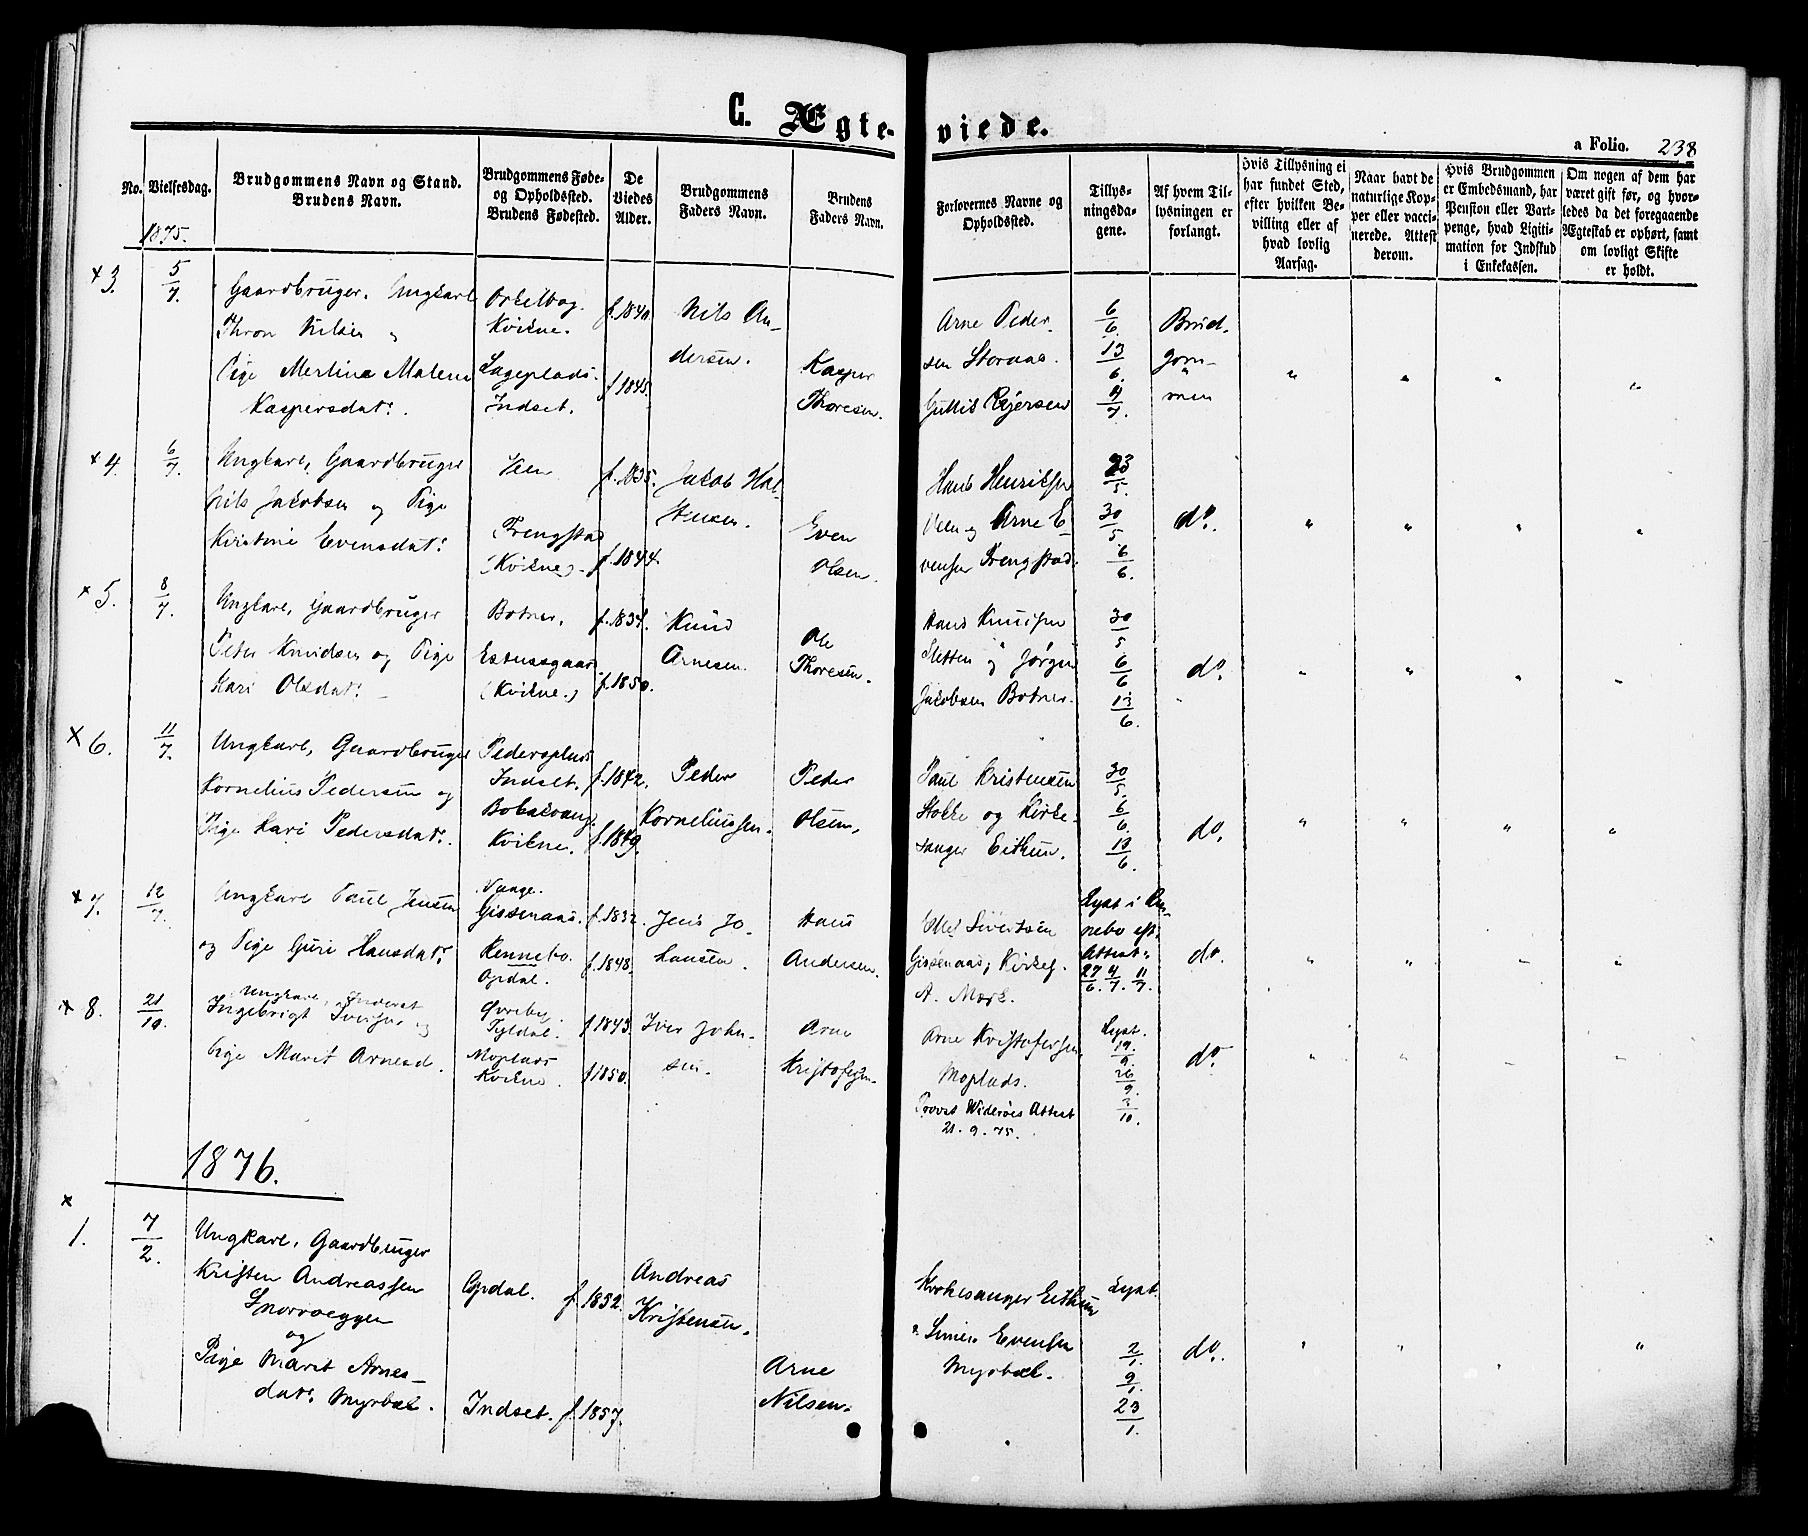 C. Ægte-
viede.
a Folio. 238
No.
Vielsesdag.
Brudgommens Navn og Stand.
Brudens Navn.
Brudgommens Føde-
og Opholdssted.
Brudens Fødested.
De
Viedes
Alder.
Brudgommens
Faders Navn.
Brudens
Faders Navn.
Forlovernes Navne og
Opholdssted.
Tillys-
ningsda-
gene.
Af hvem Til-
lysningen er
forlangt.
Hvis Tillysning ei
har fundet Sted,
efter hvilken Be-
villing eller af
hvad lovlig
Aarsag.
Naar havt de
naturlige Kop-
per eller vacci-
nerede. Attest
derom.
Hvis Brudgommen
er Embedsmand, har
Pension eller Vart-
penge, hvad Ligiti-
mation for Indskud
i Enkekassen.
Om nogen af dem har
været gift før, og hvor-
ledes da det foregaaende
Ægteskab er ophørt, samt
om lovligt Skifte
er holdt.
1875.
x 3.
5/7.
Gaardbruger, Ungkarl
Thron Nilsen og
Pige Merlina Malene
Kaspersdatr.
Kvikne.
Indset.
f. 1840.
f. 1845.
Nils An-
dersen.
Kasper
Thoresen.
Arne Peder-
sen Storaas.
6/6.
13/6.
4/7.
Brud-
gom-
men
x 4.
6/7.
Ungkarl, Gaardbruger
Nils Jakobsen og Pige
Kristine Evensdatr.
Veen
Frengstad
(Kvikne).
f. 1835.
f. 1844.
Jakob Hal-
stensen.
Even
Olsen.
Hans Henriksen
Veen og Arne E-
vensen Frengstad.
23/5.
30/5
6/6.
do.
x 5.
8/7.
Ungkarl, Gaardbruger
Peder Knudsen og Pige
Kari Olsdatr.
Botner.
Estensgaard
(Kvikne.)
f. 1834.
f. 1850.
Knud
Arnesen.
Ole
Thoresen.
Hans Knudsen
Sletten og Jørgen
Jakobsen Botner.
30/5
6/6
13/6.
do.
x 6.
11/7.
Ungkarl, Gaardbruger
Kornelius Pedersen og
Pige Kari Pedersdatr.
Pedersplads
Indset.
Bobakvang.
Kvikne.
f. 1842.
f. 1849.
Peder
Korneliussen.
Peder
Olsen.
Paul Kristensen
Stokke og Kirke-
sanger Eithun.
30/5.
6/6.
13/6.
do.
x 7.
12/7.
Ungkarl Paul Jensen
og Pige Guri Hansdatr.
Gissenaas.
Rennebo.
Opdal.
f. 1832.
f. 1848.
Jens Jo-
hansen.
Hans
Andersen.
Sivertsen
Gissenaas, Kirkes.
A. Mork.
Lyst i Ren-
nebo eft.
Attest
27/6. 4/7. 11/7.
do.
x 8.
21/10.
Ungkarl, Inderst
Ingebrigt Iversen og
Pige Marit Arnesd.
Øvreby
Tyldal.
Moplads
Kvikne.
f 1843.
f 1850.
Iver John-
sen.
Arne
Kristofersen.
Arne Kristofersen
Moplads.
Provst Widerøes Attest
21. 9. 75.
Lyst.
19/9.
26/9.
3/10.
do.
1876.
x
1.
7/2.
Ungkarl, Gaardbruger
Kristen Andreassen
Snorroeggen
og
Pige Marit Arnes-
datr. Myrbæk.
Opdal.
Indset.
f 1852.
f 1857.
Andreas
Kristensen.
Arne
Nilsen.
Kirkesanger Eithun
Simen Evensen
Myrbæk.
Lyst.
2/1.
9/1.
23/1.
do.